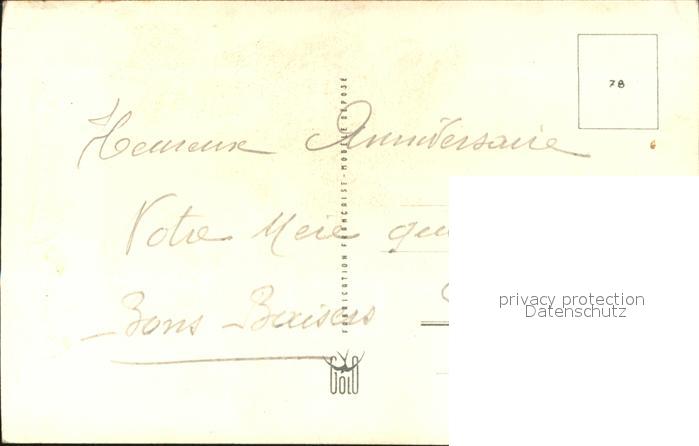 78
Heureux Anniversaire
6
Votre Mere qu
Bons Baisers
FABRICATION FRANÇAISE - MODÈLE DÉPOSÉ
privacy protection
Datenschutz